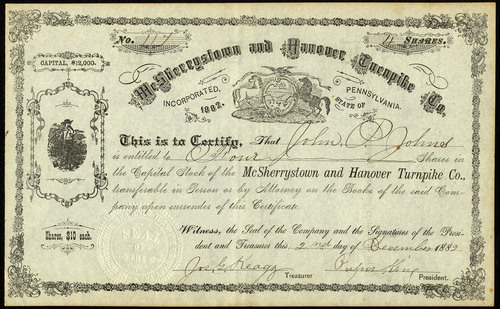 No. 187
4 SHARES.
CAPITAL, $12,000.
McSherrystown and Hanover Turnpike Co.
INCORPORATED, 1882.
STATE OF PENNSYLVANIA.
This is to Certify, That John P. Johns
is entitled to Four Shares in
the Capital Stock of the McSherrystown and Hanover Turnpike Co.,
transferable in Person or by Attorney on the Books of the said Com-
pany upon surrender of this Certificate.
Shares, $10 each.
Witness, the Seal of the Company and the Signatures of the Presi-
dent and Treasurer this 2nd day of December 1882
Jos. L. Keagy Treasurer
Rufus King President.
SEAL